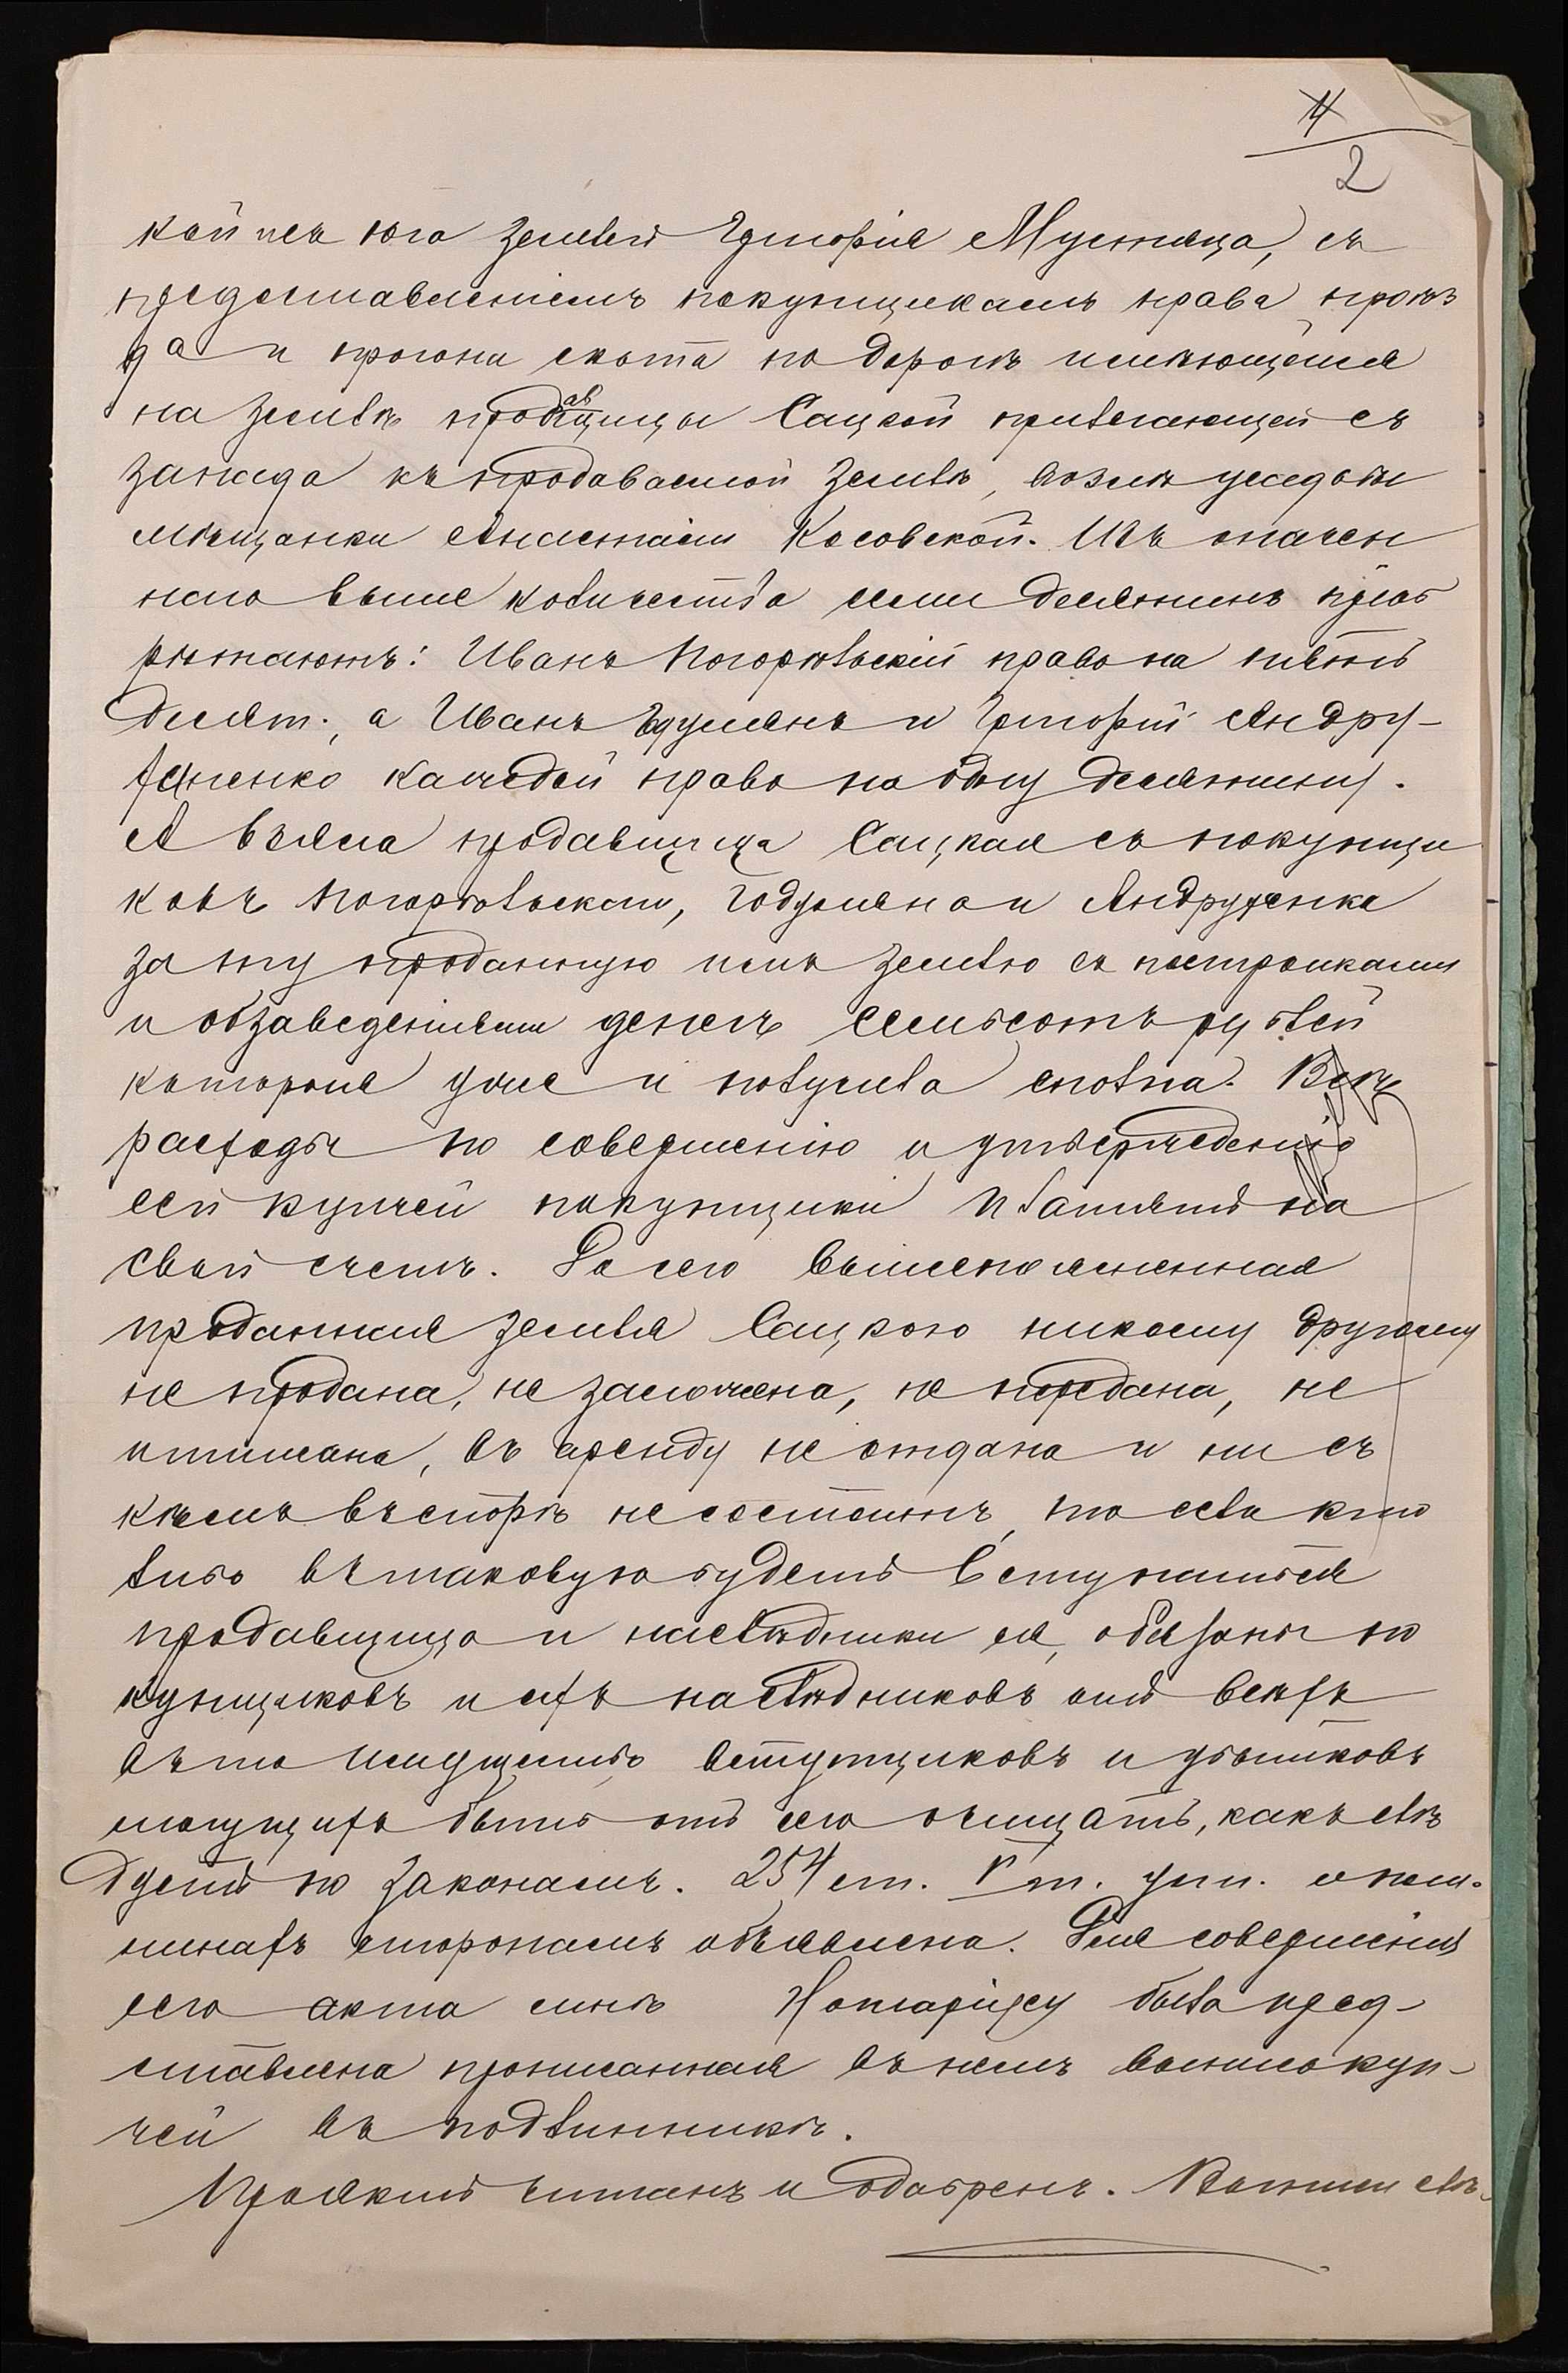 4
2
кой и съ юга землей Григорія Мустяца, съ
предоставленіемъ покупщикамъ права проѣз
да и прогона скота по дорогѣ имѣющейся
на землѣ продавщицы Сацкой прилегающей съ
запада къ продаваемой землѣ, возлѣ усадьбы
мѣщанки Анастасіи Косовской. Изъ означен
наго выше количества семи десятинъ пріоб
рѣтаютъ: Иванъ Погорѣльскій право на пять
десят., а Иванъ Годулянъ и Григорій Андру-
щенко каждый право на одну десятину.
А взяла продавщица Сацкая съ покупщи
ковъ Погорѣльскаго, Годуляна и Андрущенка
за ту проданную имъ землю съ постройками
и обзаведеніями денегъ семьсотъ рублей
которые уже и получила сполна. Всѣ
расходы по совершенію и утвержденію
сей купчей покупщики платятъ на
свой счетъ. До сего вышепоясненная
проданная земля Сацкою никому другому
не продана, не заложена, не передана, не
описана, въ аренду не отдана и ни съ
кѣмъ въ спорѣ не состоитъ, то если кто
либо въ таковую будетъ вступаться
продавщица и наслѣдники ея, обязаны по
купщиковъ и ихъ наслѣдниковъ отъ всѣхъ
въ то имущество вступщиковъ и убытковъ
могущихъ быть отъ сего очищать, какъ слѣ
дуетъ по законамъ. 254 ст. V т. уст. о пош-
линахъ сторонамъ объявлена. Для совершенія
сего акта мнѣ Нотаріусу была пред-
ставлена прописанная въ немъ выпись куп-
чей въ подлинникѣ.
Проэктъ читанъ и одобренъ. Выпись слѣ-